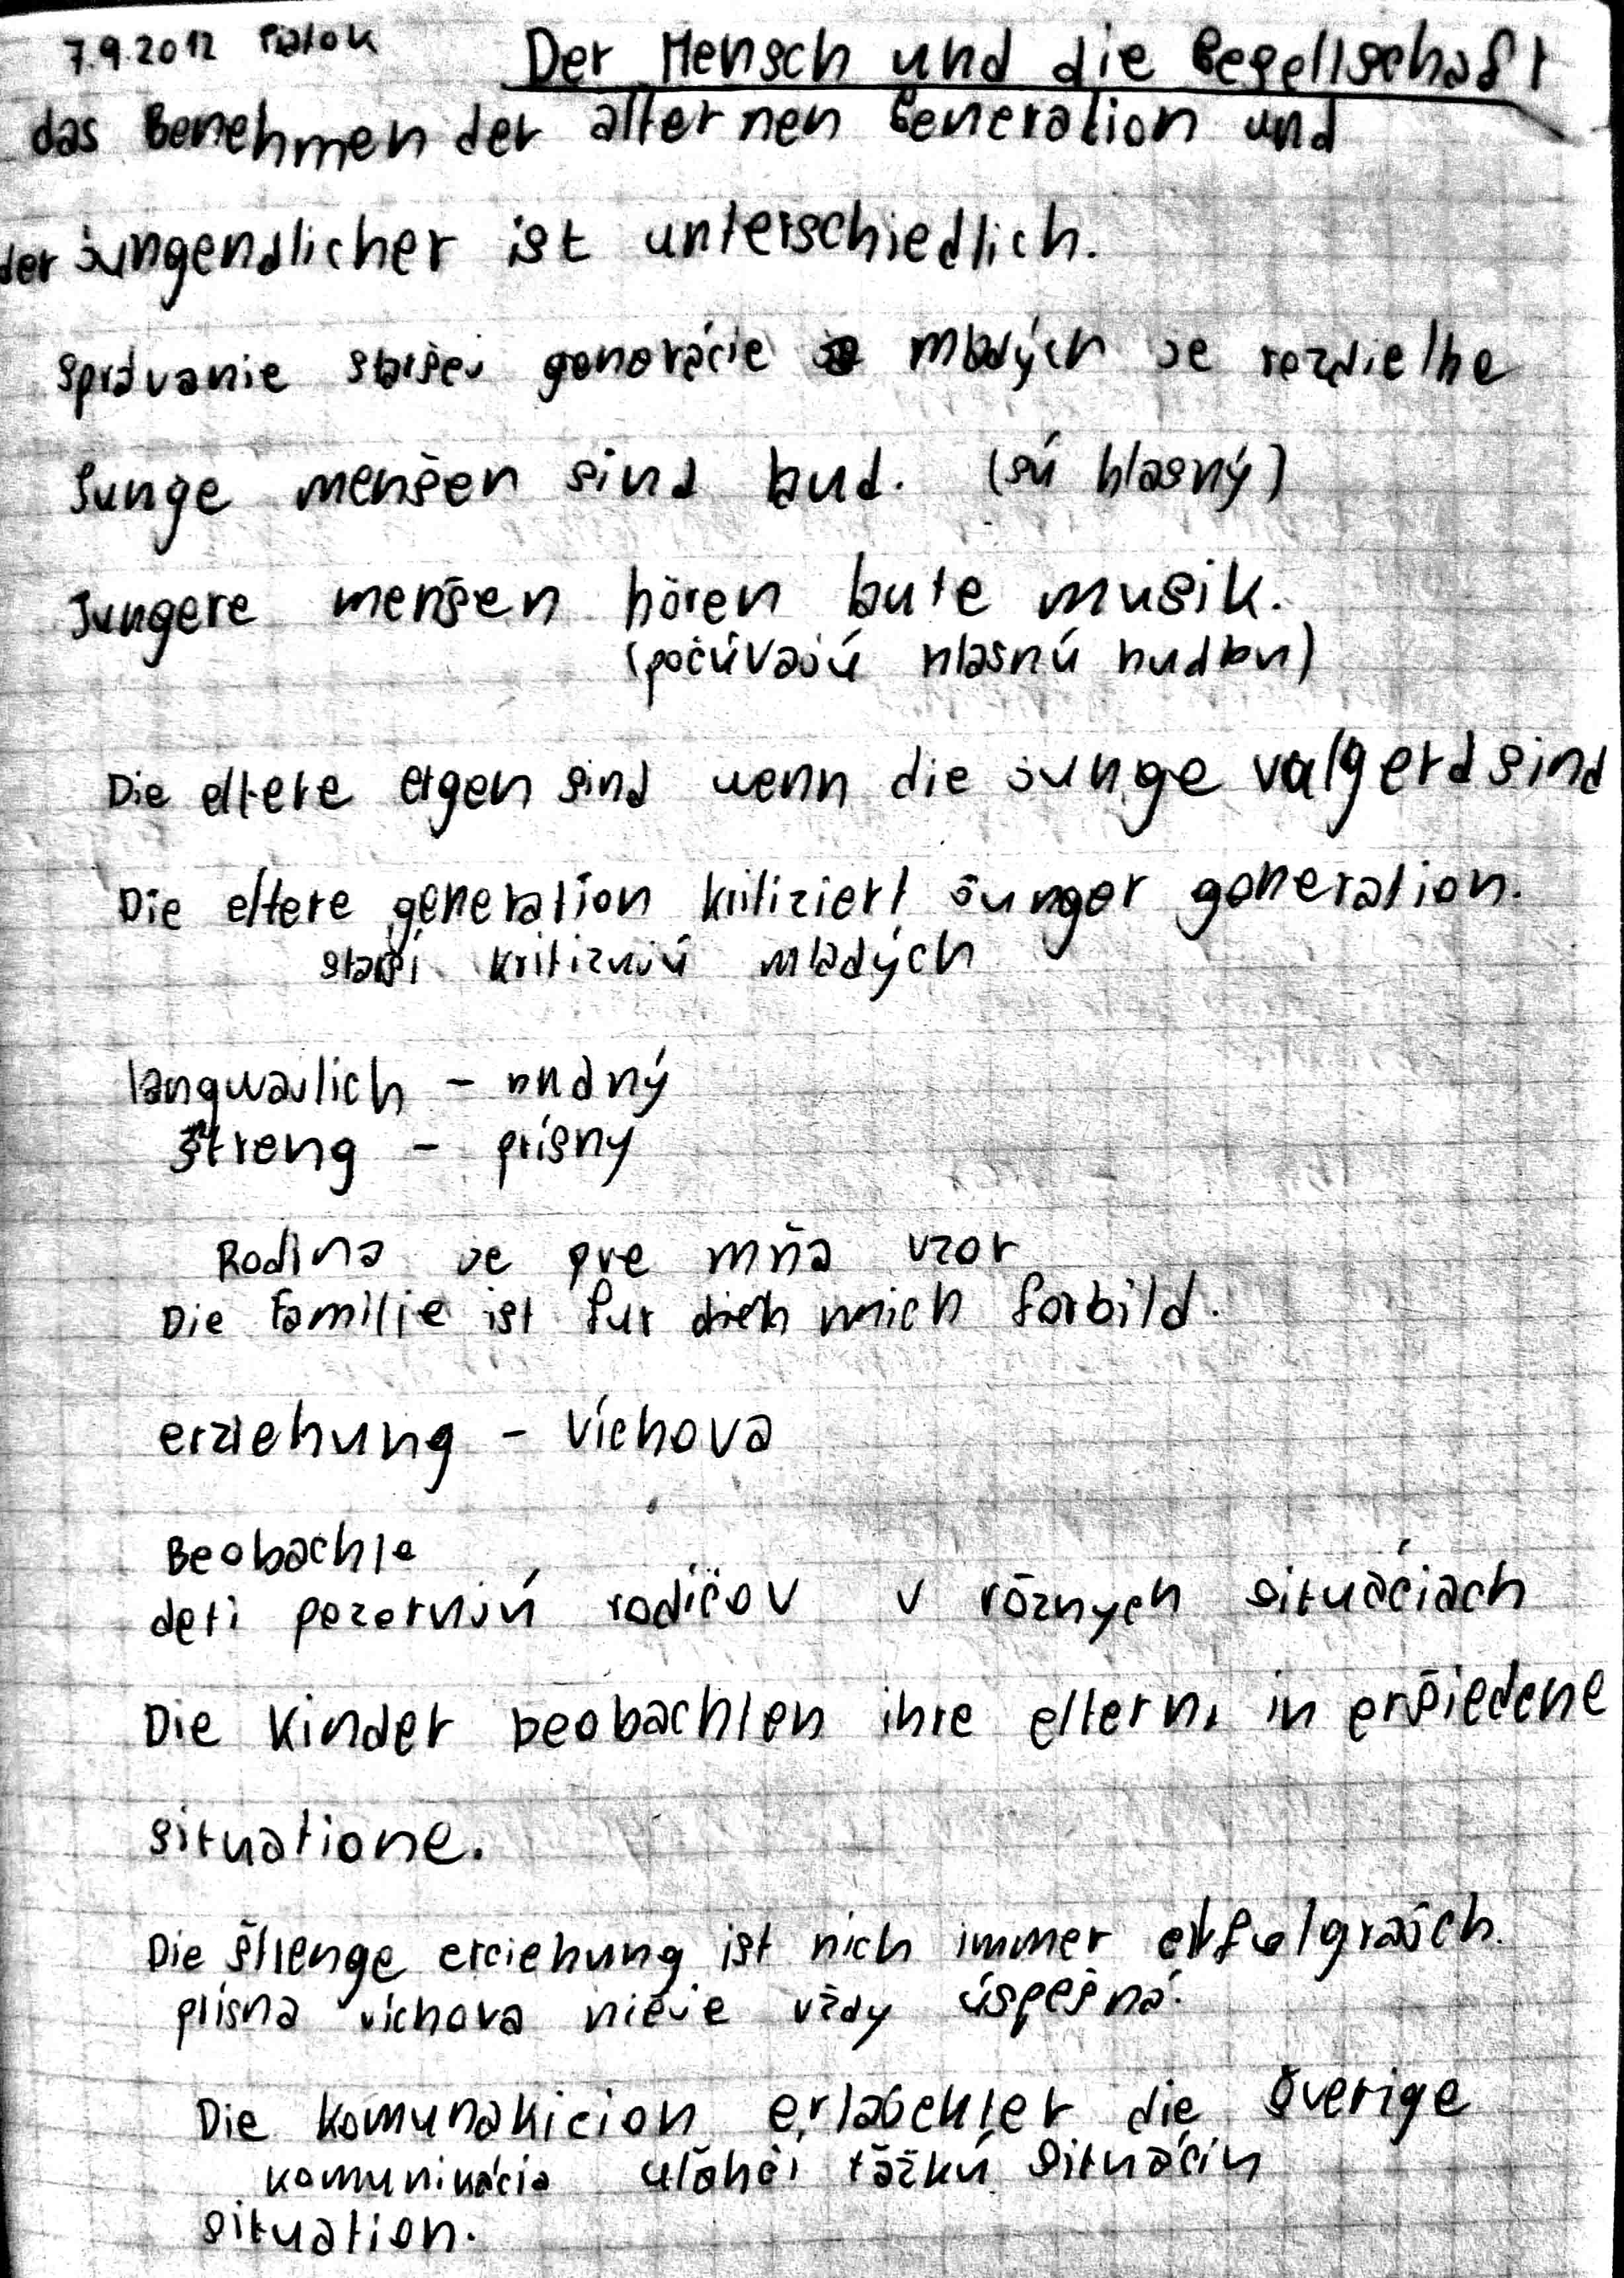 7.9.2012 Piatok Der Mensch und die Gesellschaft
das Benehmen der älternen Generation und
der jungendlicher ist unterschiedlich.
správanie staršej generácie a mladých je rozdielne
Junge menšen sind laut. (sú hlasný)
Jungere menšen hören laute musik.
(počúvajú hlasnú hudbu)
Die eltere ergen sind wenn die junge valgerd sind
Die eltere generation kritiziert junger generation.
starší kritizujú mladých
langwajlich - nudný
štreng - prísny
Rodina je pre mňa vzor
Die Familie ist fur mich forbild.
erziehung - víchova
Beobachte
deti pozerujú rodičov v róznych situáciach
Die Kinder beobachten ihre eltern, in eršiedene
situatione.
Die štrenge erciehung ist nich immer erfolgrajch.
prísna víchova nieje vždy úspešná.
Die komunakicion erlajchter die šverige
komunikácia uľahčí ťažkú situáciu
situation.